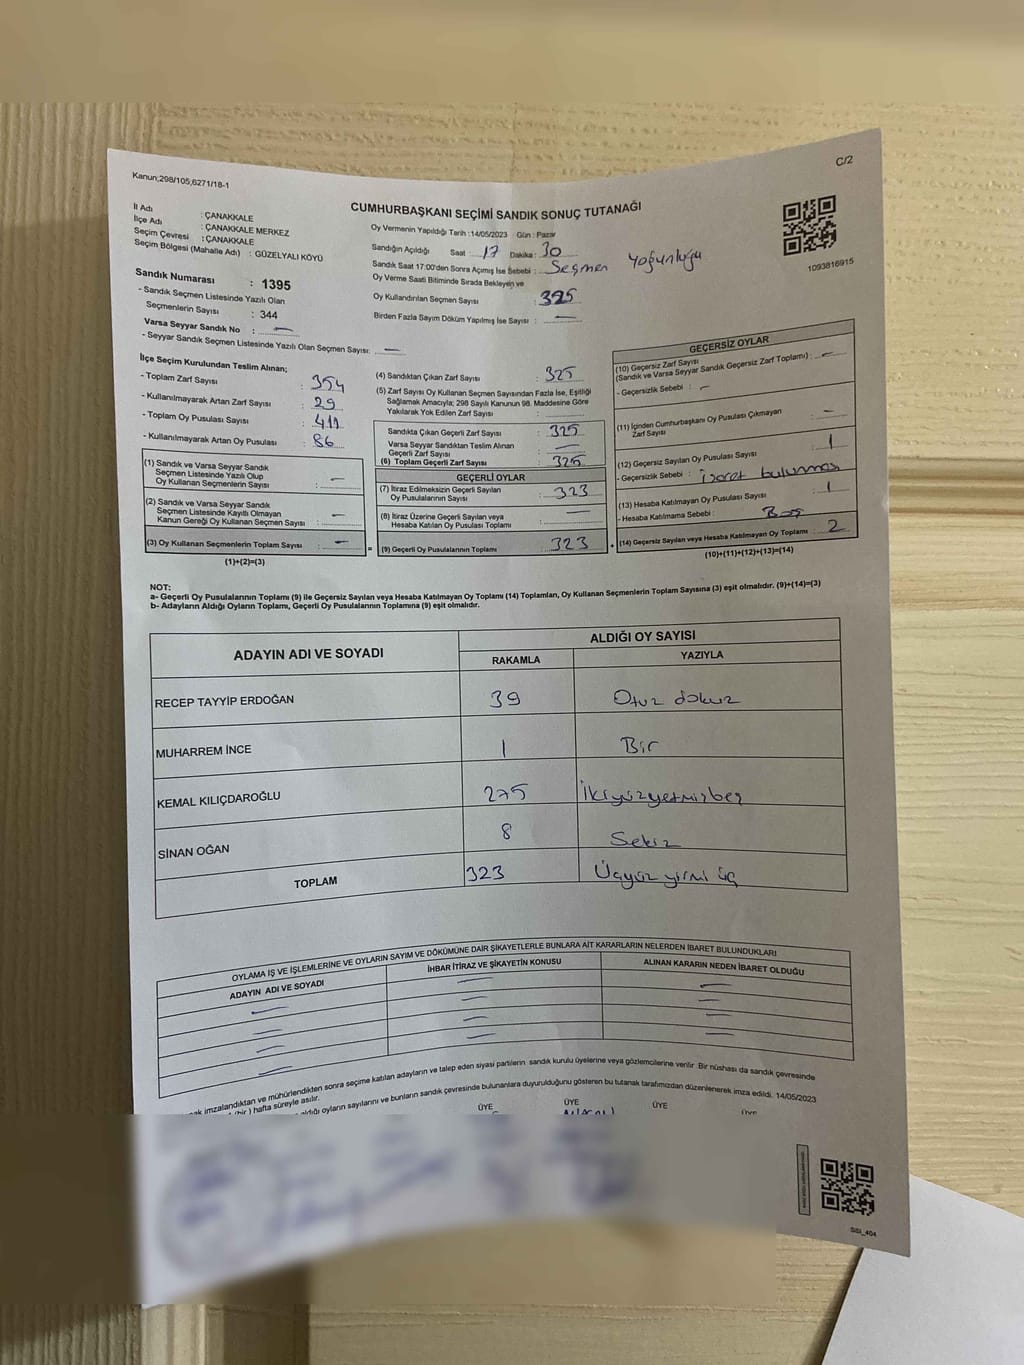 C/2
Kanun;298/105,6271/18-1
CUMHURBAŞKANI SEÇİMİ SANDIK SONUÇ TUTANAĞI
İl Adı : ÇANAKKALE
İlçe Adı : ÇANAKKALE MERKEZ
Seçim Çevresi : ÇANAKKALE
Seçim Bölgesi (Mahalle Adı) : GÜZELYALI KÖYÜ
Oy Vermenin Yapıldığı Tarih :14/05/2023 Gün : Pazar
Sandığın Açıldığı Saat : 17 Dakika : 30
Sandık Saat 17:00'den Sonra Açımış İse Sebebi : Seçmen Yoğunluğu
Oy Verme Saati Bitiminde Sırada Bekleyen ve
Oy Kullandırılan Seçmen Sayısı : 325
Birden Fazla Sayım Döküm Yapılmış İse Sayısı : —
1093816915
Sandık Numarası : 1395
- Sandık Seçmen Listesinde Yazılı Olan
Seçmenlerin Sayısı : 344
Varsa Seyyar Sandık No : —
- Seyyar Sandık Seçmen Listesinde Yazılı Olan Seçmen Sayısı: —
İlçe Seçim Kurulundan Teslim Alınan;
- Toplam Zarf Sayısı : 354
- Kullanılmayarak Artan Zarf Sayısı : 29
- Toplam Oy Pusulası Sayısı : 411
- Kullanılmayarak Artan Oy Pusulası : 86
(1) Sandık ve Varsa Seyyar Sandık
Seçmen Listesinde Yazılı Olup
Oy Kullanan Seçmenlerin Sayısı : —
(2) Sandık ve Varsa Seyyar Sandık
Seçmen Listesinde Kayıtlı Olmayan
Kanun Gereği Oy Kullanan Seçmen Sayısı : —
(3) Oy Kullanan Seçmenlerin Toplam Sayısı : —
(1)+(2)=(3)
(4) Sandıktan Çıkan Zarf Sayısı : 325
(5) Zarf Sayısı Oy Kullanan Seçmen Sayısından Fazla İse, Eşitliği
Sağlamak Amacıyla; 298 Sayılı Kanunun 98. Maddesine Göre
Yakılarak Yok Edilen Zarf Sayısı :
Sandıkta Çıkan Geçerli Zarf Sayısı : 325
Varsa Seyyar Sandıktan Teslim Alınan
Geçerli Zarf Sayısı : —
(6) Toplam Geçerli Zarf Sayısı : 325
GEÇERLİ OYLAR
(7) İtiraz Edilmeksizin Geçerli Sayılan
Oy Pusulalarının Sayısı : 323
(8) İtiraz Üzerine Geçerli Sayılan veya
Hesaba Katılan Oy Pusulası Toplamı : —
= (9) Geçerli Oy Pusulalarının Toplamı : 323 +
GEÇERSİZ OYLAR
(10) Geçersiz Zarf Sayısı
(Sandık ve Varsa Seyyar Sandık Geçersiz Zarf Toplamı) : —
- Geçersizlik Sebebi : —
(11) İçinden Cumhurbaşkanı Oy Pusulası Çıkmayan
Zarf Sayısı : —
(12) Geçersiz Sayılan Oy Pusulası Sayısı : 1
- Geçersizlik Sebebi : İşaret bulunması
(13) Hesaba Katılmayan Oy Pusulası Sayısı : 1
- Hesaba Katılmama Sebebi : Boş
(14) Geçersiz Sayılan veya Hesaba Katılmayan Oy Toplamı : 2
(10)+(11)+(12)+(13)=(14)
NOT:
a- Geçerli Oy Pusulalarının Toplamı (9) ile Geçersiz Sayılan veya Hesaba Katılmayan Oy Toplamı (14) Toplamları, Oy Kullanan Seçmenlerin Toplam Sayısına (3) eşit olmalıdır. (9)+(14)=(3)
b- Adayların Aldığı Oyların Toplamı, Geçerli Oy Pusulalarının Toplamına (9) eşit olmalıdır.
ADAYIN ADI VE SOYADI ALDIĞI OY SAYISI
RAKAMLA YAZIYLA
RECEP TAYYİP ERDOĞAN 39 Otuz dokuz
MUHARREM İNCE 1 Bir
KEMAL KILIÇDAROĞLU 275 İkiyüzyetmişbeş
SİNAN OĞAN 8 Sekiz
TOPLAM 323 Üçyüz yirmi üç
OYLAMA İŞ VE İŞLEMLERİNE VE OYLARIN SAYIM VE DÖKÜMÜNE DAİR ŞİKAYETLERLE BUNLARA AİT KARARLARIN NELERDEN İBARET BULUNDUKLARI
ADAYIN ADI VE SOYADI İHBAR İTİRAZ VE ŞİKAYETİN KONUSU ALINAN KARARIN NEDEN İBARET OLDUĞU
— — —
— — —
— — —
— — —
imzalandıktan ve mühürlendikten sonra seçime katılan adayların ve talep eden siyasi partilerin sandık kurulu üyelerine veya gözlemcilerine verilir. Bir nüshası da sandık çevresinde
hafta süreyle asılır.
aldığı oyların sayılarını ve bunların sandık çevresinde bulunanlara duyurulduğunu gösteren bu tutanak tarafımızdan düzenlenerek imza edildi. 14/05/2023
ÜYE ÜYE ÜYE ÜYE
SSİ_404